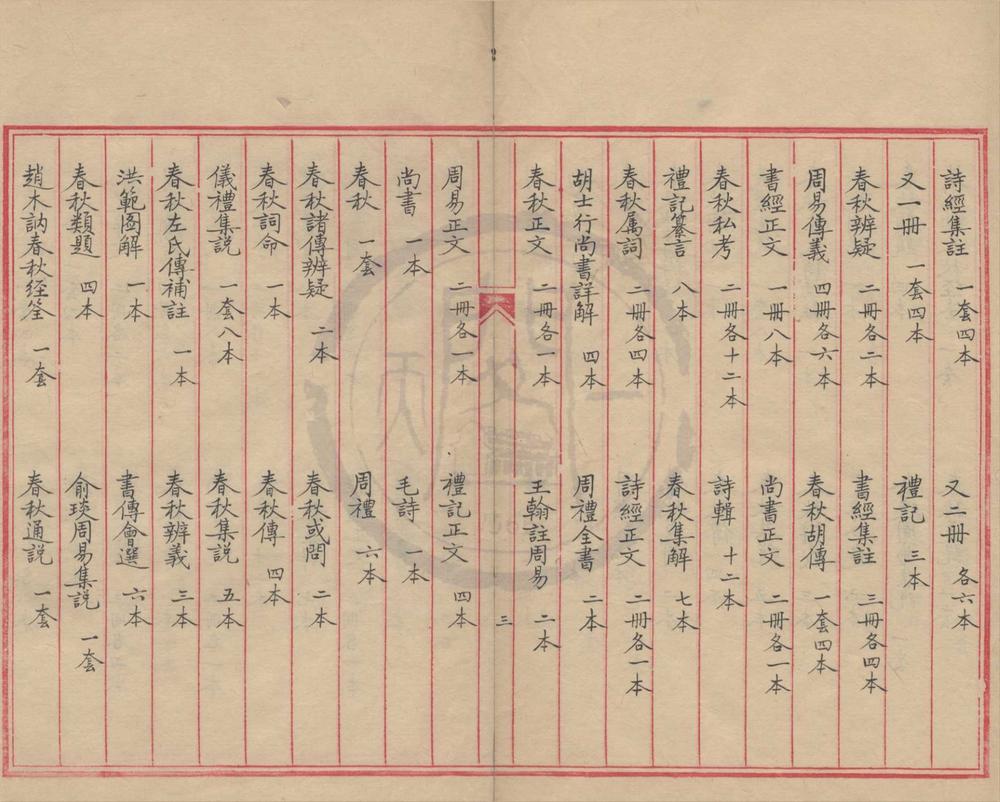 詩經集註 一套四本 又二冊 各六本
又一冊 一套四本 禮記 三本
春秋辨疑 二冊各二本 書經集註 三冊各四本
周易傳義 四冊各六本 春秋胡傳 一套四本
書經正文 一冊八本 尚書正文 二冊各一本
春秋私考 二冊各十二本 詩輯 十二本
禮記纂言 八本 春秋集解 七本
春秋属詞 二冊各四本 詩經正文 二冊各一本
胡士行尚書詳解 四本 周禮全書 二本
春秋正文 二冊各一本 王翰註周易 二本
三
周易正文 二冊各一本 禮記正文 四本
尚書 一本 毛詩 一本
春秋 一套 周禮 六本
春秋諸傳辨疑 二本 春秋或問 二本
春秋詞命 一本 春秋傳 四本
儀禮集説 一套八本 春秋集説 五本
春秋左氏傳補註 一本 春秋辨義 三本
洪範圖解 一本 書傳會選 六本
春秋類題 四本 俞琰周易集説 一套
趙木訥春秋经筌 一套 春秋通説 一套